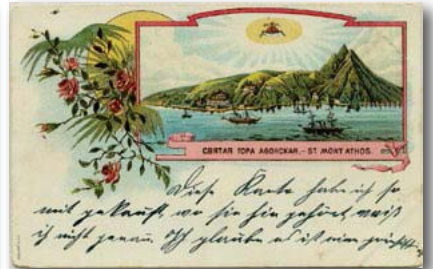 СВЯТАЯ ГОРА АѲОНСКАЯ.- ST MONT ATHOS.
Diese Karte habe ich so
mit gekauft, wo sie hin gehört, weiß
ich nicht genau. Ich glaube es ist eine